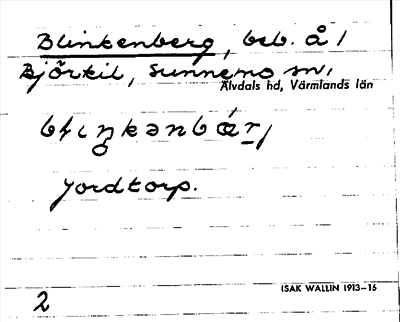 Blinkenberg, beb. å /
Björkil, Sunnemo sn,
Älvdals hd, Värmlands län
Jordtorp.
ISAK WALLIN 1913–16
2